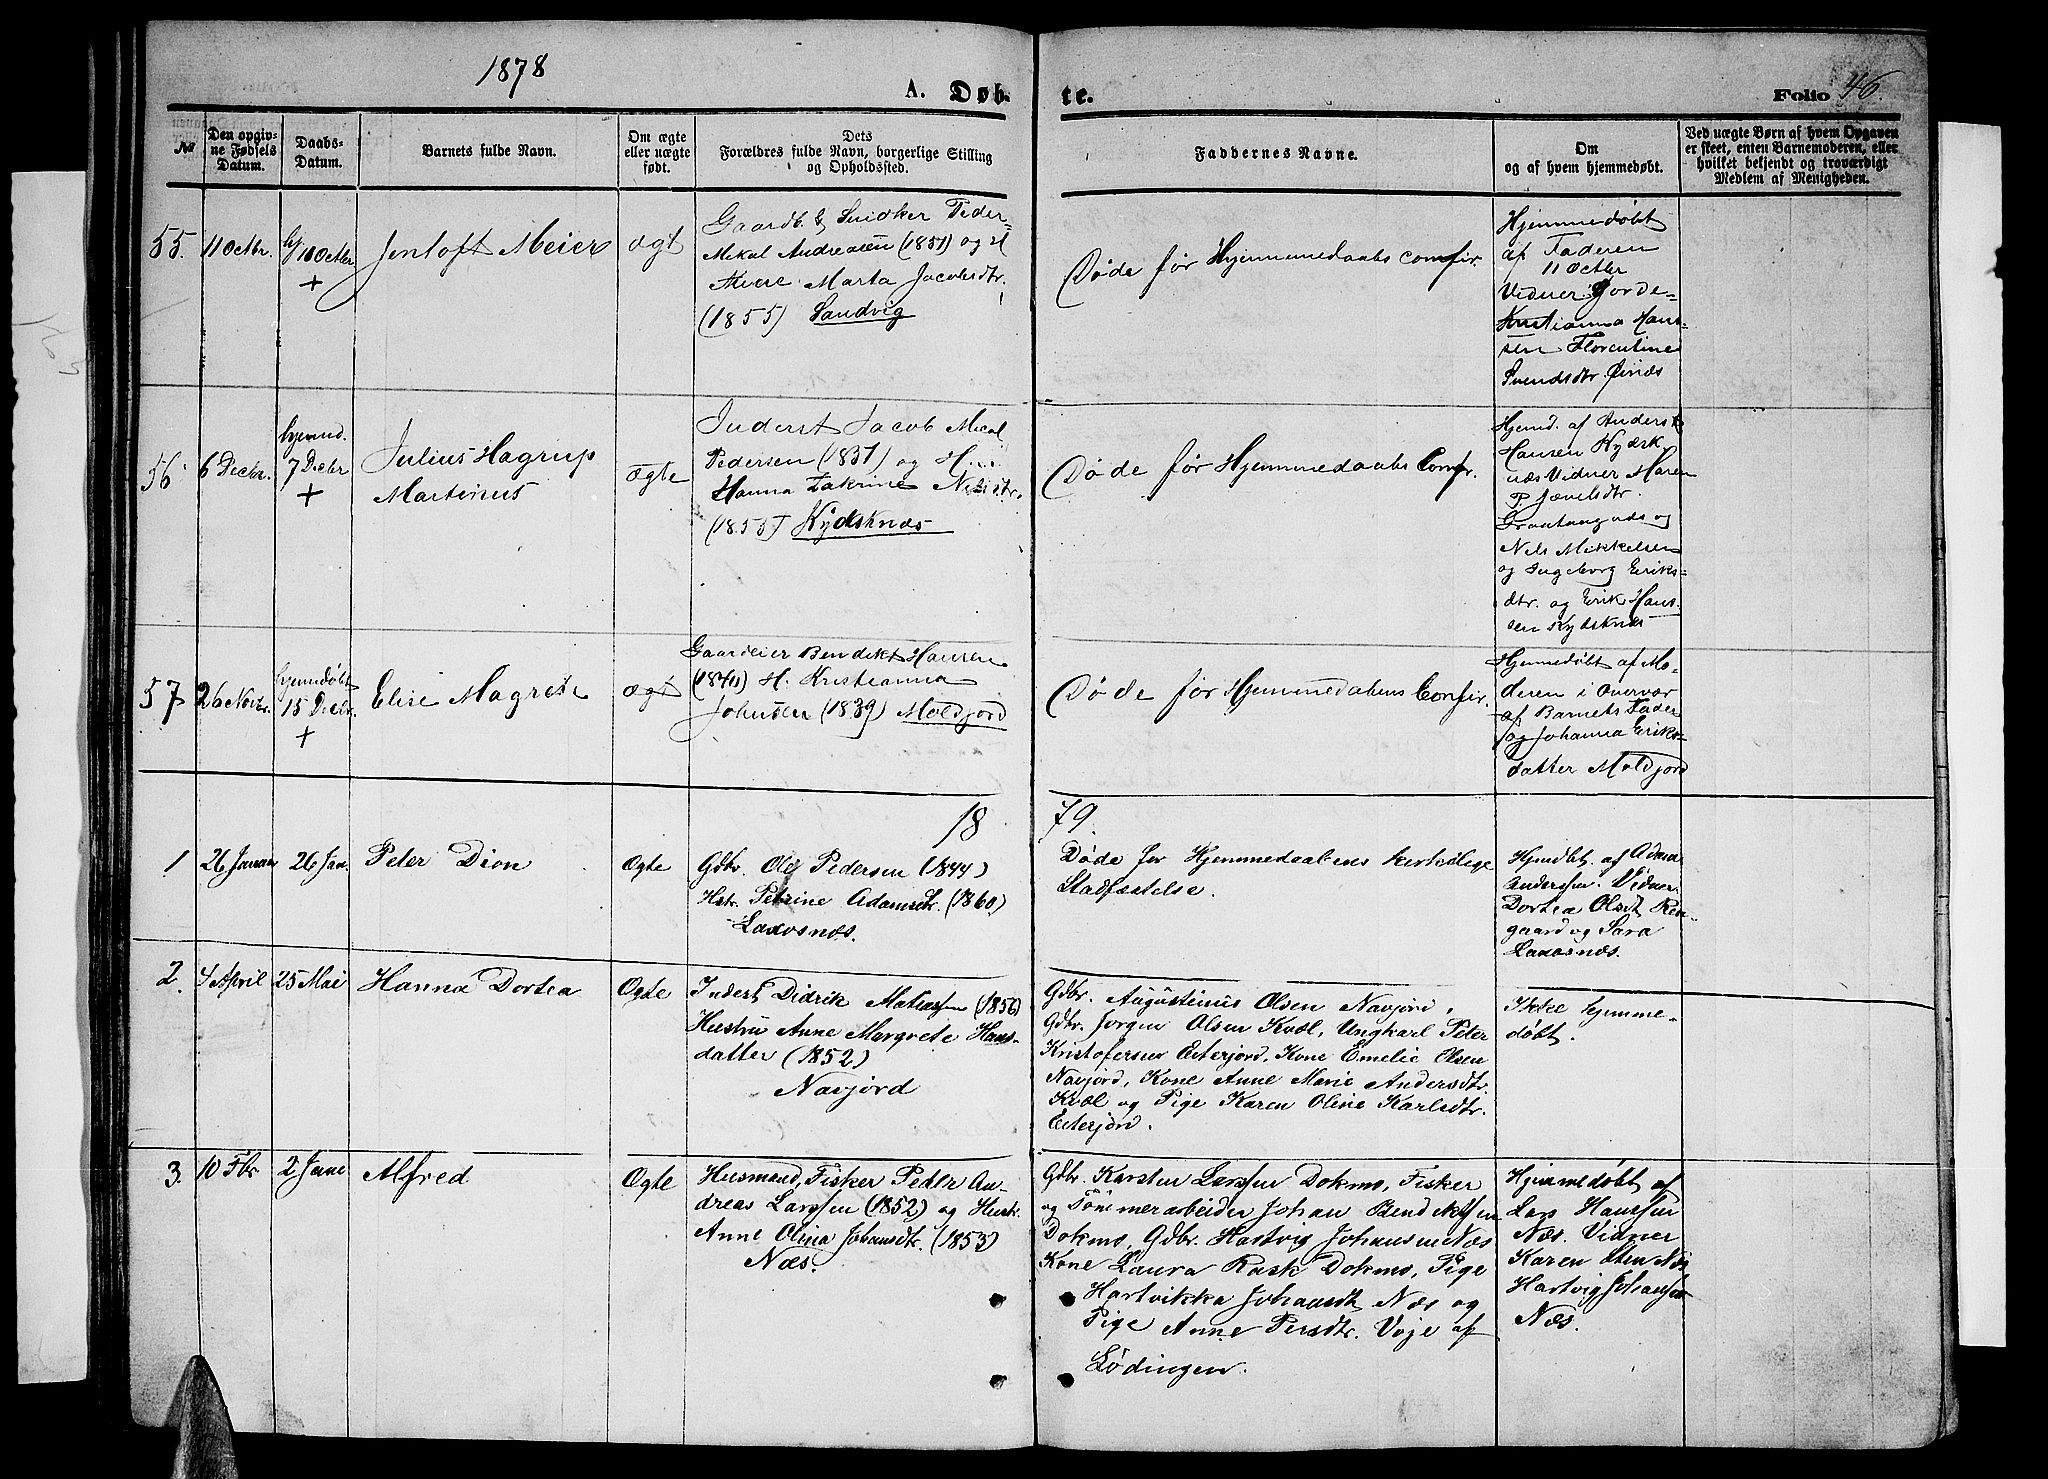 1878
A. Døb-
te.
Folio 46.
No
Den opgiv-
ne Fødsels
Datum.
Daabs-
Datum.
Barnets fulde Navn.
Om ægte
eller uægte
født.
Dets
Forældres fulde Navn, borgerlige Stilling
og Opholdssted.
Faddernes Navne.
Om
og af hvem hjemmedøbt.
Ved uægte Børn af hvem Opgaven
er skeet, enten Barnemoderen, eller
hvilket bekjendt og troværdigt
Medlem af Menigheden.
55.
11 Octbr.
hj 11 Octbr
+
Jentoft Meier
ægt
Gaardb. & Snidker Peder
Mikal Andreasen (1851) og H
Marta Jacobsdtr.
(1855) Sandvig
Døde før Hjemmedaabs comfir.
Hjemmedøbt
af Faderen
11 Octbr
Vidner: Jorde-
Kristianna Han-
sen Florentine
Svendsdtr.
56
6 Decbr.
hjemd.
7 Decbr
+
Julius Hagrup
Martinus
ægte
Inderst Jacob Mical
Pedersen (1837) og H
Hanna Nilsdtr.
(1855) Kydsknæs
Døde før Hjemmedaabs Comfr.
Hjemd. af Anders
Hansen Kydsk
næs Vidner Maren
P.
Graatangnæs og
Nels Mikkelsen
og Ingeborg Eriks-
dtr. og Erik Han-
sen Kydsknæs
57
26 Novbr.
hjemdøbt
15 Decbr.
+
Elise Magrete
ægt
Gaardeier Bendikt Hansen
(1840) H. Kristianna
Johnsen (1839) Moldjord
Døde før Hjemmedabens Confir.
Hjemmedøbt af Mo-
deren i overvær
af Barnets Fader
og Johanna Eriks-
datter Moldjord
18
79.
1
26 Januar
26 Jan.
Peter Dion
Ægte
Gdbr. Ole Pedersen (1844)
Hstr. Petrine Adamsdtr. (1860)
Laxosnæs.
Døde før Hjemmedaabens kirkelige
Stadfæstelse.
Hjemdbt. af Adam
Anderssen. Vidner
Dortea Olsdt Ren-
gaard og Sara
Laxosnæs.
2.
4 April
25 Mai
Hanna Dortea
Ægte
Inderst Didrik Matiassen (1856)
Hustru Anne Margrete Hans-
datter (1852)
Navjord
Gdbr. Augustinus Olsen Navjord,
Gdbr. Jørgen Olsen Kvæl, Ungkarl Peter
Kristofersen Eiterjord, Kone Emelie Olsen
Navjord, Kone Anne Marie Andersdtr.
Kvæl og Pige Karen Oline Karlsdtr.
Eiterjord.
Ikke hjemme-
døbt.
3.
10 Fbr
2 June
Alfred
Ægte
Husmand, Fisker Peder An-
dreas Larssen (1852) og Hust.
Anne Olina Johansdtr. (1853)
Næs.
Gdbr. Karsten Larssen Dokmo, Fisker
og Tømmerarbeider Johan Bendiktsen
Dokmo, Gdbr. Hartvig Johansen Næs
Kone Laura Rask Dokmo, Pige
Hartvikka Johansdt Næs og
Pige Anne Persdtr. Voje af
Lødingen.
Hjemmedøbt af
Lars Hanssen
Næs. Vidner
Karen Sten Næs
Hartvig Johansen
Næs.